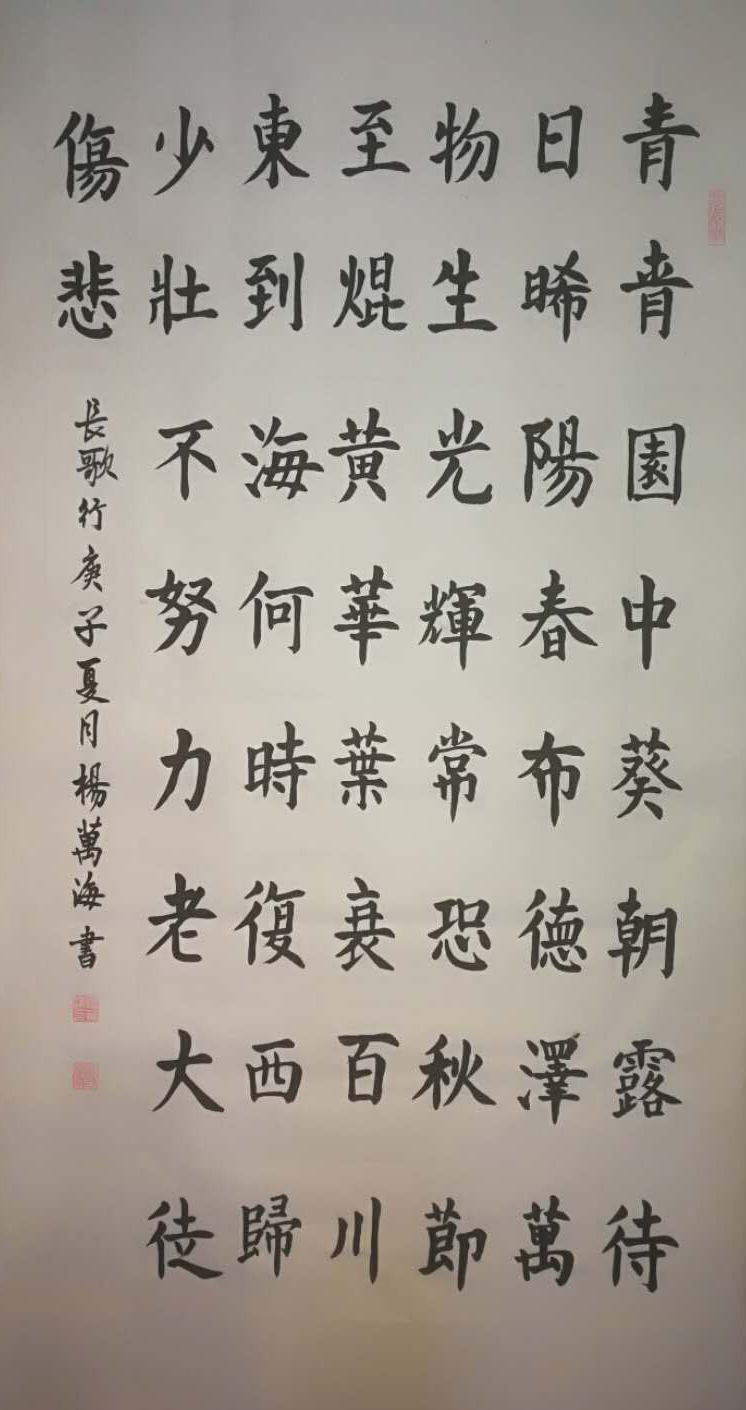 青青園中葵朝露待
日晞陽春布德澤萬
物生光輝常恐秋節
至焜黃華葉衰百川
東到海何時復西歸
少壯不努力老大徒
傷悲
長歌行庚子夏月楊萬海書